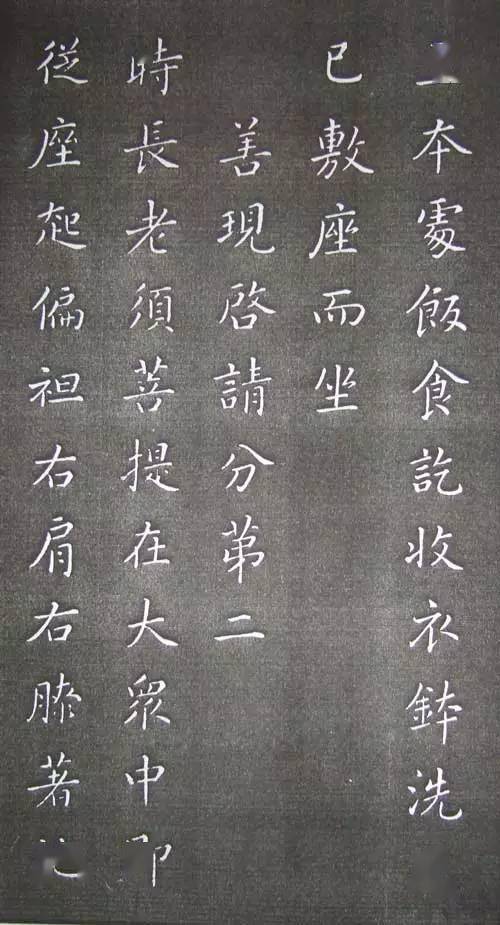 本處飯食訖收衣鉢洗
已敷座而坐
善現啓請分苐二
時長老須菩提在大眾中
従座起偏袒右肩右膝著